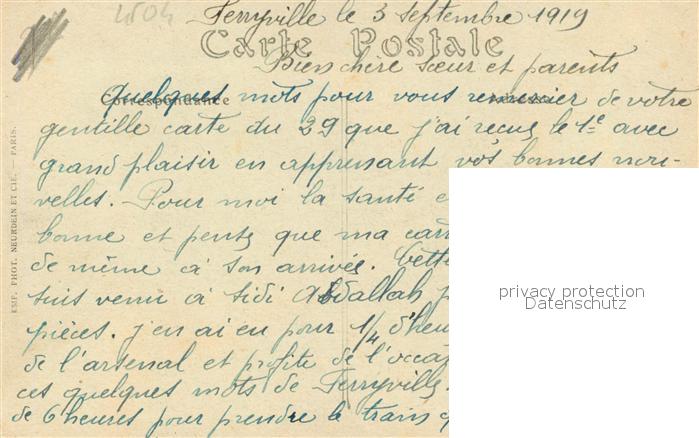 Ferryville le 3 septembre 1919
Carte Postale
Bien chère sœur et parents
Correspondance
quelques mots pour vous remercier de votre
gentille carte du 29 que j'ai reçue le 1er avec
grand plaisir en apprenant vos bonnes nou-
velles. Pour moi la santé
bonne et pense que ma
de même à son arrivée.
suis venu à Sidi Abdallah
pièces. j'en ai eu pour 1/4 d'heu
de l'arsenal et profite de l'occa
ces quelques mots de Ferryville.
de 6 heures pour prendre le train
EMP. PHOT. NEURDEIN ET CIE. PARIS.
privacy protection
Datenschutz